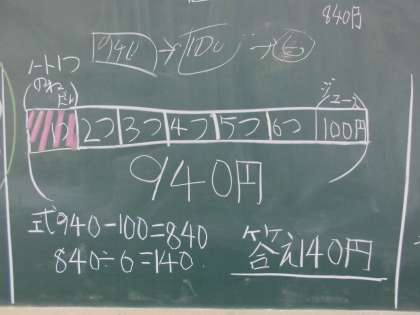 840円
940→100→6
ノート1つ
のねだん
ジュース
1つ 2つ 3つ 4つ 5つ 6つ 100円
940円
式940-100=840
840÷6=140
答え140円